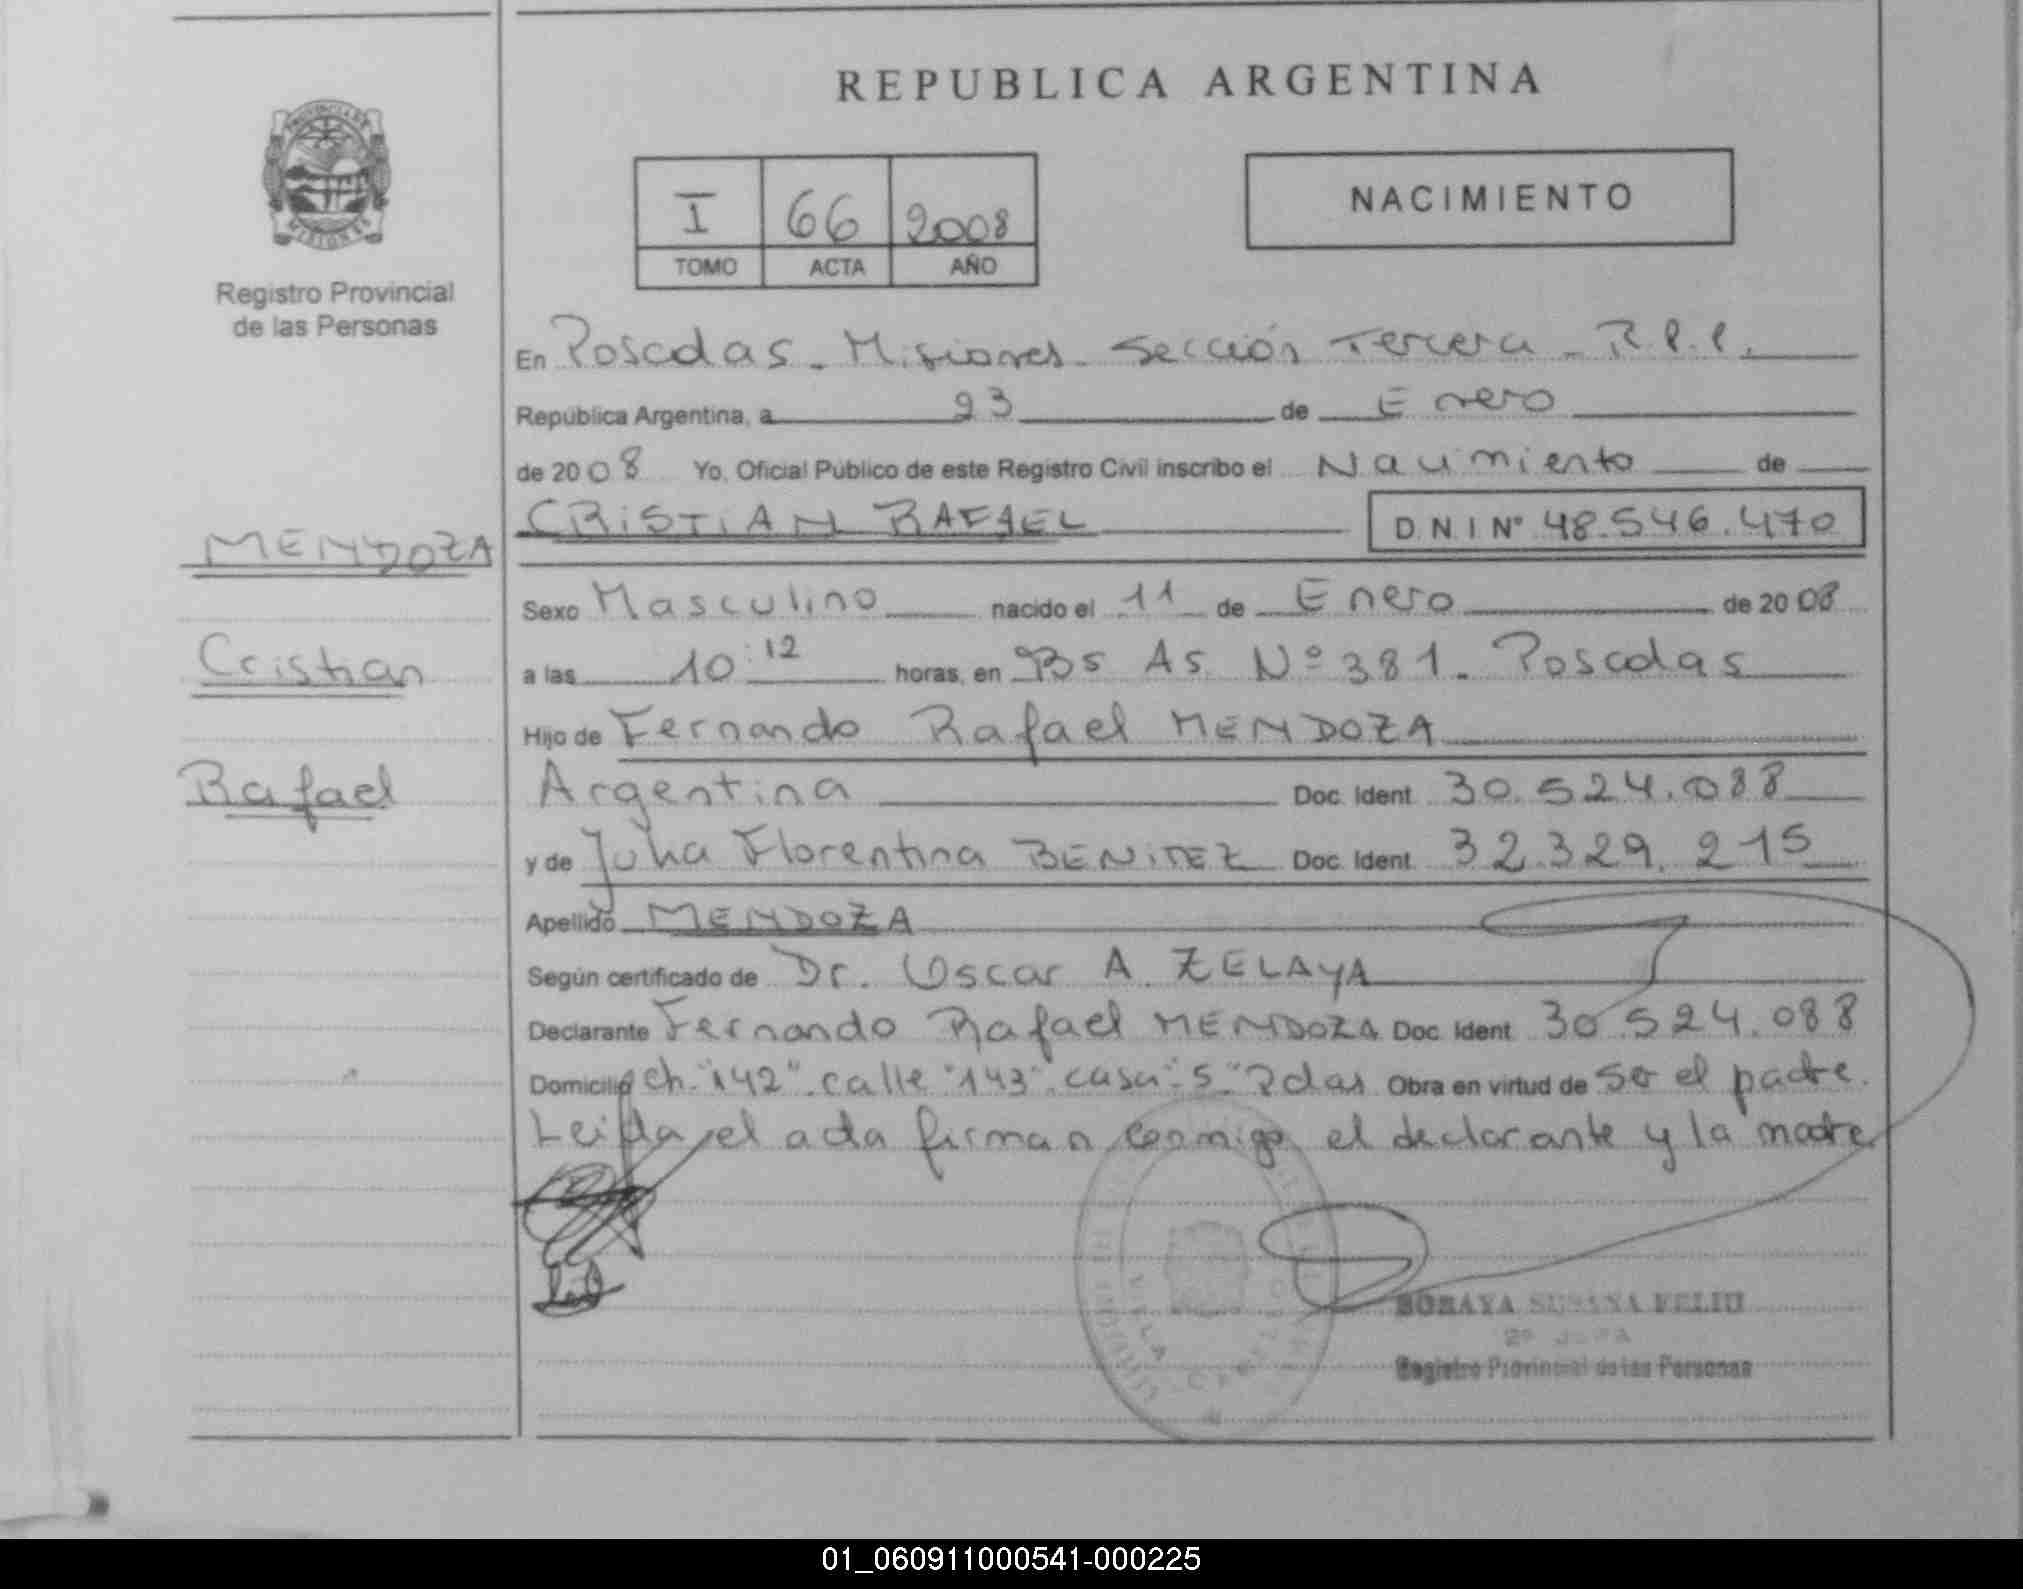 REPUBLICA ARGENTINA
PROVINCIA DE MISIONES
Registro Provincial
de las Personas
I 66 2008
TOMO ACTA AÑO
NACIMIENTO
En Posadas - Misiones - Sección Tercera - R.P.P.
República Argentina, a 23 de Enero
de 2008 Yo, Oficial Público de este Registro Civil inscribo el Nacimiento de
CRISTIAN RAFAEL D.N.I Nº 48.546.470
MENDOZA
Cristian
Rafael
Sexo Masculino nacido el 11 de Enero de 2008
a las 10:12 horas, en Bs As Nº 381 - Posadas
Hijo de Fernando Rafael MENDOZA
Argentina Doc. Ident. 30.524.088
y de Julia Florentina BENITEZ Doc. Ident. 32.329.215
Apellido MENDOZA
Según certificado de Dr. Oscar A. ZELAYA
Declarante Fernando Rafael MENDOZA Doc. Ident. 30.524.088
Domicilio ch. "142" calle "143" casa "5" Pdas Obra en virtud de ser el padre.
Leida el acta firman conmigo el declarante y la madre
SORAYA SUSANA FELIU
Registro Provincial de las Personas
01_060911000541-000225